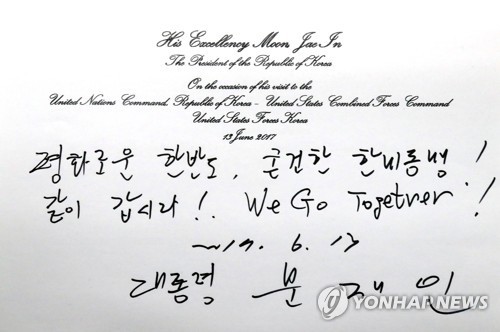 His Excellency Moon, Jae In
The President of the Republic of Korea
On the occasion of his visit to the
United Nations Command, Republic of Korea – United States Combined Forces Command
United States Forces Korea
13 June 2017
평화로운 한반도, 굳건한 한미동맹!
같이 갑시다!. We Go Together!
2017. 6. 13
대통령 문 재 인
YONHAP NEWS